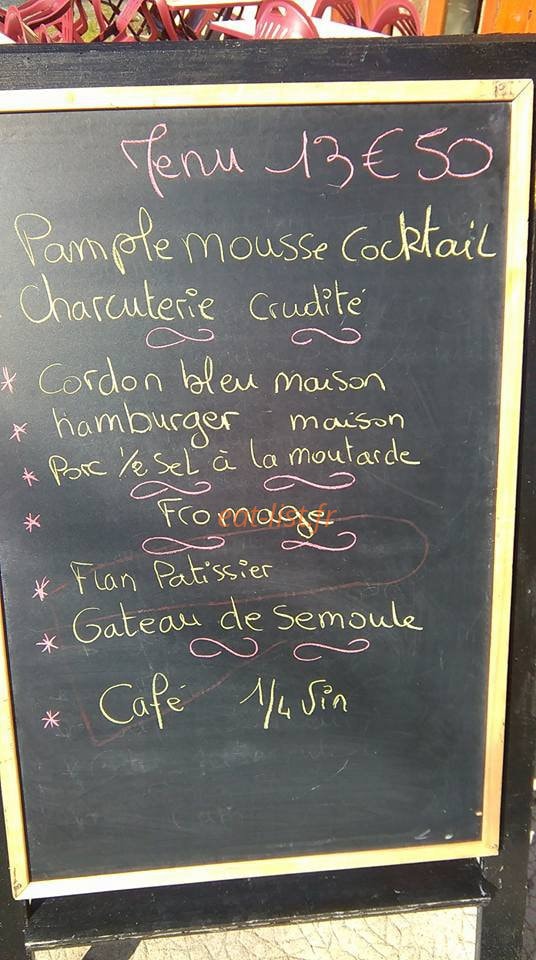 Menu 13€50
Pamplemousse Cocktail
Charcuterie Crudité
* Cordon bleu maison
* hamburger maison
* Porc 1/2 Sel à la moutarde
* Fromage
eatdlist.fr
* Flan Patissier
* Gateau de Semoule
* Café 1/4 Vin